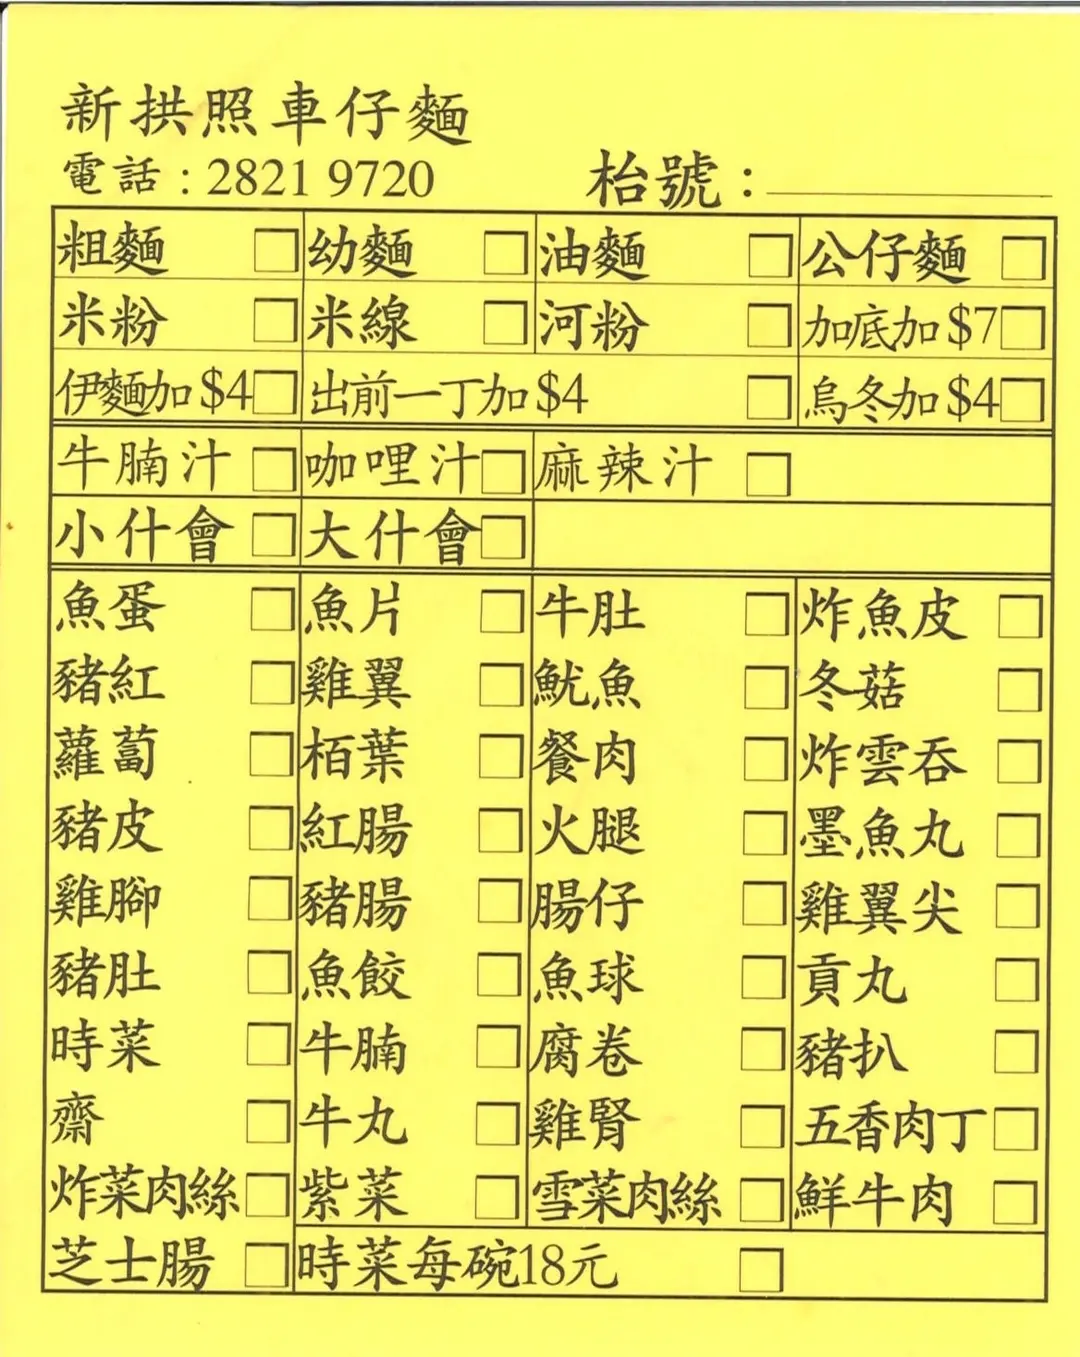 新拱照車仔麵
電話：2821 9720 枱號：
粗麵 □ 幼麵 □ 油麵 □ 公仔麵 □
米粉 □ 米線 □ 河粉 □ 加底加 $7 □
伊麵加 $4 □ 出前一丁加 $4 □ 烏冬加 $4 □
牛腩汁 □ 咖哩汁 □ 麻辣汁 □
小什會 □ 大什會 □
魚蛋 □ 魚片 □ 牛肚 □ 炸魚皮 □
豬紅 □ 雞翼 □ 魷魚 □ 冬菇 □
蘿蔔 □ 栢葉 □ 餐肉 □ 炸雲吞 □
豬皮 □ 紅腸 □ 火腿 □ 墨魚丸 □
雞腳 □ 豬腸 □ 腸仔 □ 雞翼尖 □
豬肚 □ 魚餃 □ 魚球 □ 貢丸 □
時菜 □ 牛腩 □ 腐卷 □ 豬扒 □
齋 □ 牛丸 □ 雞腎 □ 五香肉丁 □
炸菜肉絲 □ 紫菜 □ 雪菜肉絲 □ 鮮牛肉 □
芝士腸 □ 時菜每碗18元 □